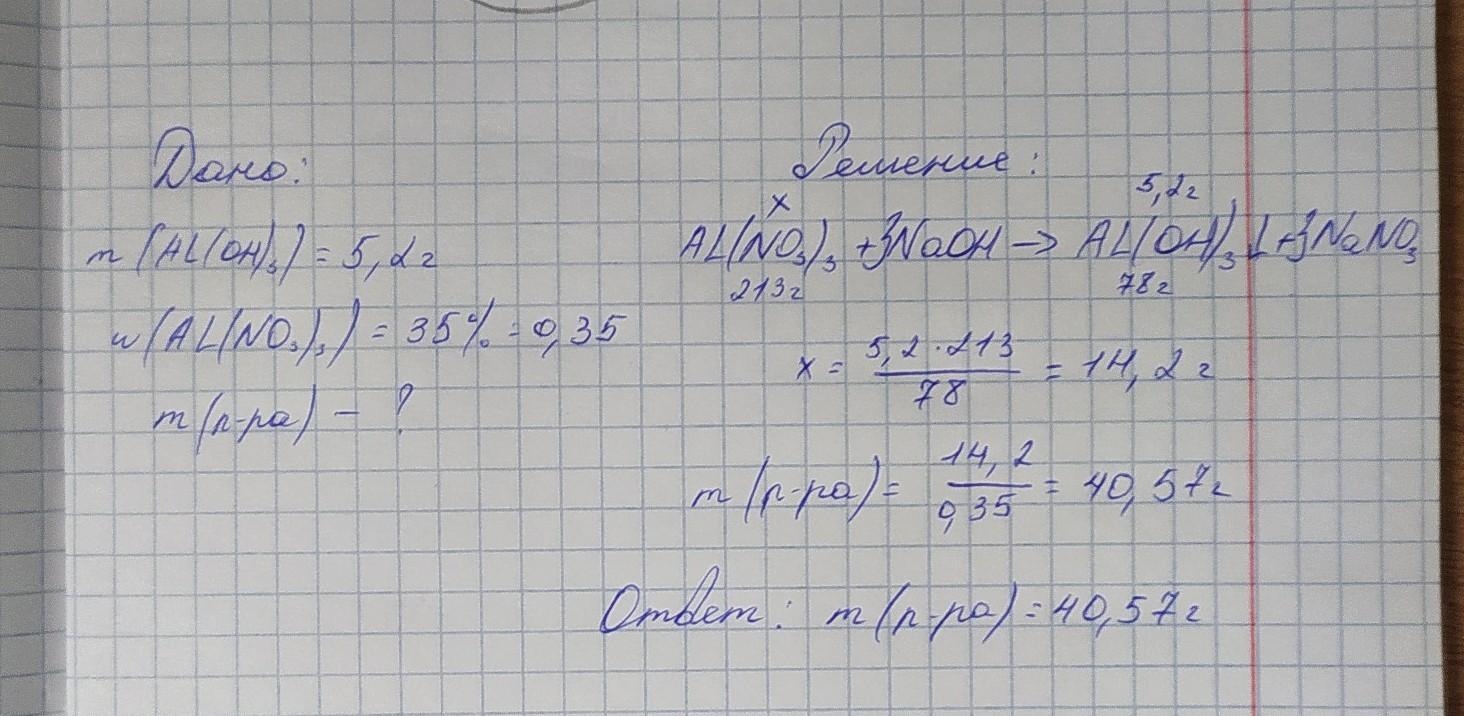 Дано:
m(AL(OH)₃) = 5,2г
w(AL(NO₃)₃) = 35% = 0,35
m(р-ра) - ?
Решение:
x 5,2г
AL(NO₃)₃ + 3NaOH → AL(OH)₃↓ + 3NaNO₃
213г 78г
x = 5,2 · 213 / 78 = 14,2 г
m(р-ра) = 14,2 / 0,35 = 40,57г
Ответ: m(р-ра) = 40,57г